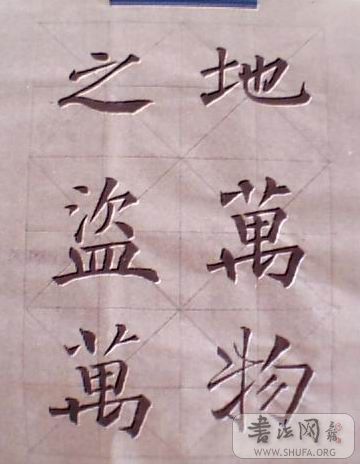 地萬物
之盗萬
书法网
WWW.SHUFA.ORG